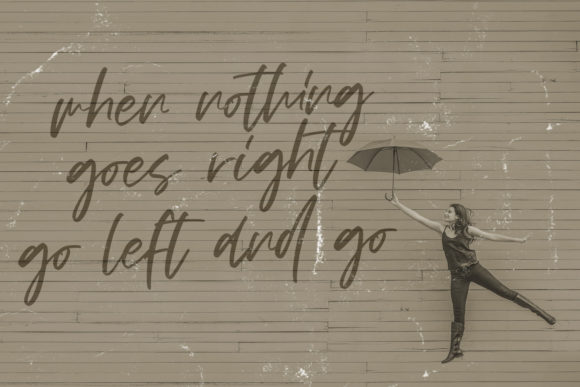 when nothing
goes right
go left and go